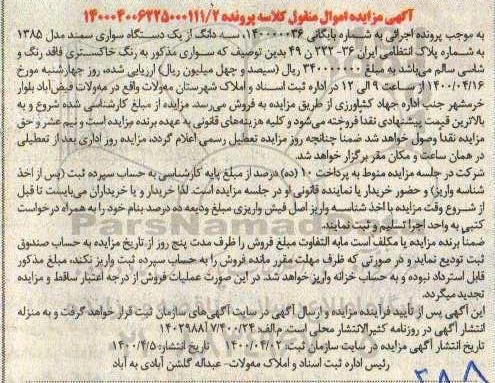 آگهی مزایده اموال منقول کلاسه پرونده ۱۴۰۰۰۴۰۰۶۲۲۵۰۰۰۱۱۱/۲
به موجب پرونده اجرائی به شماره بایگانی ۱۴۰۰۰۰۰۳۶، سه دانگ از یک دستگاه سواری سمند مدل ۱۳۸۵
به شماره پلاک انتظامی ایران ۳۶- ۲۲۲ ن ۴۹ بدین توصیف که سواری مذکور به رنگ خاکستری فاقد رنگ و
شاسی سالم می‌باشد به مبلغ ۳۴۰۰۰۰۰۰۰ ریال (سیصد و چهل میلیون ریال) ارزیابی شده، روز چهارشنبه مورخ
۱۴۰۰/۰۴/۱۶ از ساعت ۹ الی ۱۲ در اداره ثبت اسناد و املاک شهرستان مه‌ولات واقع در مه‌ولات فیض‌آباد بلوار
خرمشهر جنب اداره جهاد کشاورزی از طریق مزایده به فروش می‌رسد. مزایده از مبلغ کارشناسی شده شروع و به
بالاترین قیمت پیشنهادی نقدا فروخته می‌شود و کلیه هزینه‌های قانونی به عهده برنده مزایده است و نیم عشر و حق
مزایده نقدا وصول خواهد شد. ضمنا چنانچه روز مزایده تعطیل رسمی اعلام گردد، مزایده روز اداری بعد از تعطیلی
در همان ساعت و مکان مقرر برگزار خواهد شد.
شرکت در جلسه مزایده منوط به پرداخت ۱۰ (ده) درصد از مبلغ پایه کارشناسی به حساب سپرده ثبت (پس از اخذ
شناسه واریز) و حضور خریدار یا نماینده قانونی او در جلسه مزایده است. لذا خریدار و یا خریداران می‌بایست تا قبل
از شروع وقت مزایده با اخذ شناسه واریز اصل فیش واریزی مبلغ ودیعه ده درصد بنام خود را به همراه درخواست
کتبی به واحد اجرا تسلیم و ثبت نمایند.
ضمنا برنده مزایده یا مکلف است مابه التفاوت مبلغ فروش را ظرف مدت پنج روز از تاریخ مزایده به حساب صندوق
ثبت تودیع نماید و در صورتی که ظرف مهلت مقرر مانده فروش را به حساب سپرده ثبت واریز نکند، مبلغ مذکور
قابل استرداد نبوده و به حساب خزانه واریز خواهد شد. در این صورت عملیات فروش از درجه اعتبار ساقط و مزایده
تجدید میگردد.
این آگهی پس از تأیید فرآیند مزایده و ارسال آگهی در سایت آگهی‌های سازمان ثبت قرار خواهد گرفت و به منزله
انتشار آگهی در روزنامه کثیرالانتشار محلی است. م.الف: ۷/۴۰۰/۲۴ ۱۴۰۲۹۸۸ا
تاریخ انتشار آگهی مزایده در سایت سازمان ثبت: ۱۴۰۰/۰۴/۰۲ تاریخ انتشار: ۱۴۰۰/۴/۵
رئیس اداره ثبت اسناد و املاک مه‌ولات- عبداله گلشن آبادی به آباد